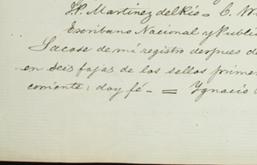 J. P. Martinez del Rio = C. W.
Escribano Nacional y Public
Sacose de mi registro despues d
en seis fojas de los sellos prime
corriente: doy fé. = Ygnacio